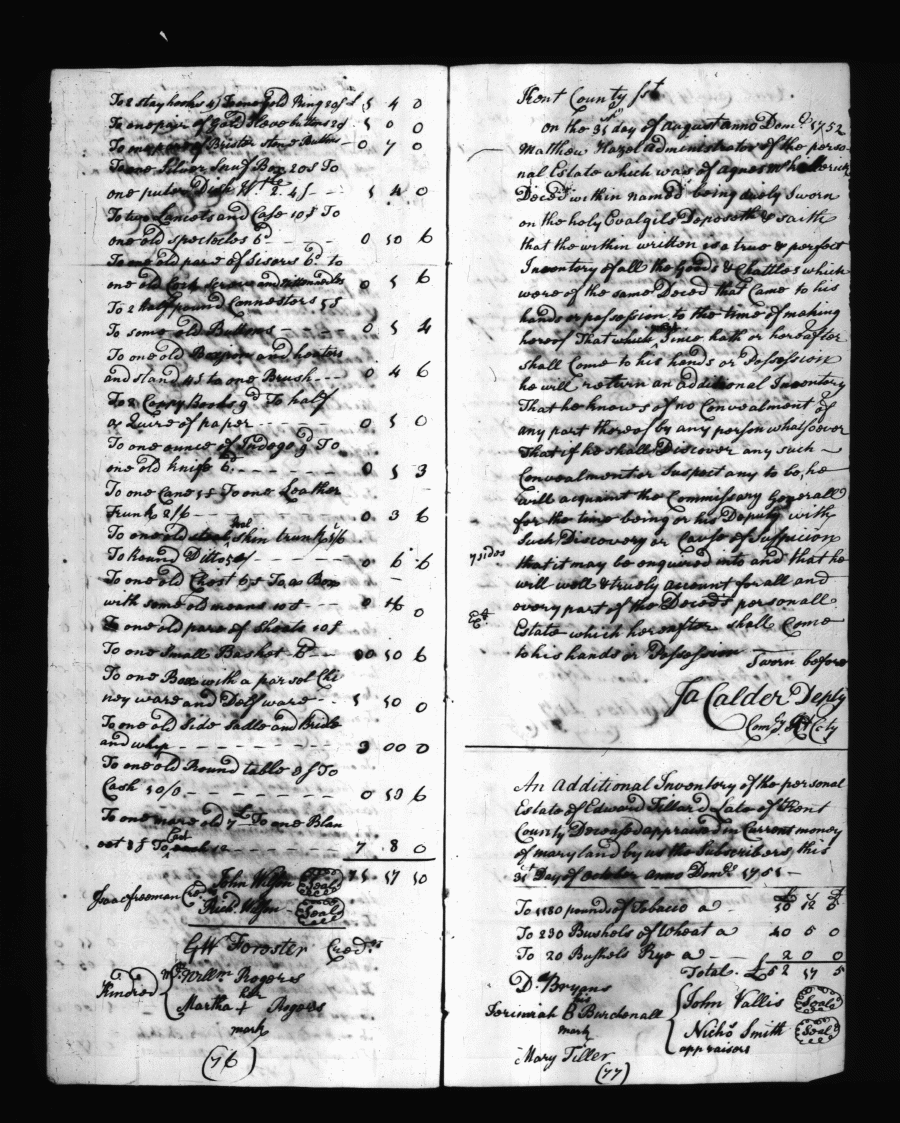 To 2 stay hooks 4/ To one gold Ring 20/ £ 1 4 0
To one pair of Gold Sleve buttons 20/ 1 0 0
To one pair of Brister stone Buttons - 0 7 0
To one Silver Snuf Box 20s To
one puter Dish Wt 2.4s - 1 4 0
To two Lancets and Case 10s To
one old spectocles 6d - 0 10 6
To one old pare of Sisers 6d to
one old Cork Screw and 0 1 6
To 2 half pound Connesters 1s
To some old Buttons - - - 0 1 4
To one old Boxiron and heators
and stand 4s to one Brush - - - 0 4 6
To 2 Coppy Books 9d To half
a Quire of paper - - - 0 1 0
To one ounce of Indego 9d To
one old knife 6d - - - 0 1 3
To one Cane 1s To one Leather
Trunk 2/6 - - - 0 3 6
To one old Seal Skin trunk 1/6
To Round Ditto 5s/ - - - 0 6 6
To one old Chest 6s To a Box
with some old means 10s - - - 0 16 0
To one old pare of Sheets 10s
To one Small Basket 6d - - 00 10 6
To one Box with a parsol Chi
ney ware and Delf ware - - 1 10 0
To one old Side Sadle and Bridle
and whip - - - 3 00 0
To one old Round table 9s To
Cash 10/0 - - - 0 19 6
To one mare old 7£ To one Blan
cet 8s To 7 8 0
John Wilson Seal 71 17 10
Isaac freeman Cre
Richd Wilson Seal
GW Forester Creds
Kindred
Willm Rogers
her
Martha + Rogers
mark
(76)
Kent County sst
on the 31st day of august anno Dom: 1752
Matthew Hazel administrator of the perso-
nal Estate which was of agness
Deced within named being duely Sworn
on the holy Evalgils Deposeth & saith
that the within written is a true & perfect
Inventory of all the Goods & Chattles which
were of the same Deced that Came to his
hands or possession to the time of making
hereof That which Since hath or hereafter
shall Come to his hands or Possession
he will return an additional Inventory
That he knows of no Convealment of
any part thereof by any person whatsoever
That if he shall Discover any such
Convealment or Suspect any to be, he
will acquaint the Commissary Generall
for the time being or his Deputy with
Such Discovery or Cause of Suspicion
7 sides
that it may be enquired into and that he
will well & truely account for all and
every part of the Deced's personall
Estate which hereafter shall Come
to his hands or Possession
Sworn before
Ja Calder Depty
Comy Kt Cty
An additional Inventory of the personal
Estate of Edward Tillard Late of Kent
County Deceased appraised in Carrent money
of maryland by us the Subscribers this
31st Day of october anno Dom: 1751 -
£ s d
To 1180 pound of Tobacco a - 10 12 5
To 230 Bushels of Wheat a 40 5 0
To 20 Bushels Rye a - 2 0 0
Total. £52 17 5
D. Bryans
his
Jerimiah B Burchonall
mark
Mary Tiller
John Vallis Seal
Nichs Smith Seal
appraisors
(77)